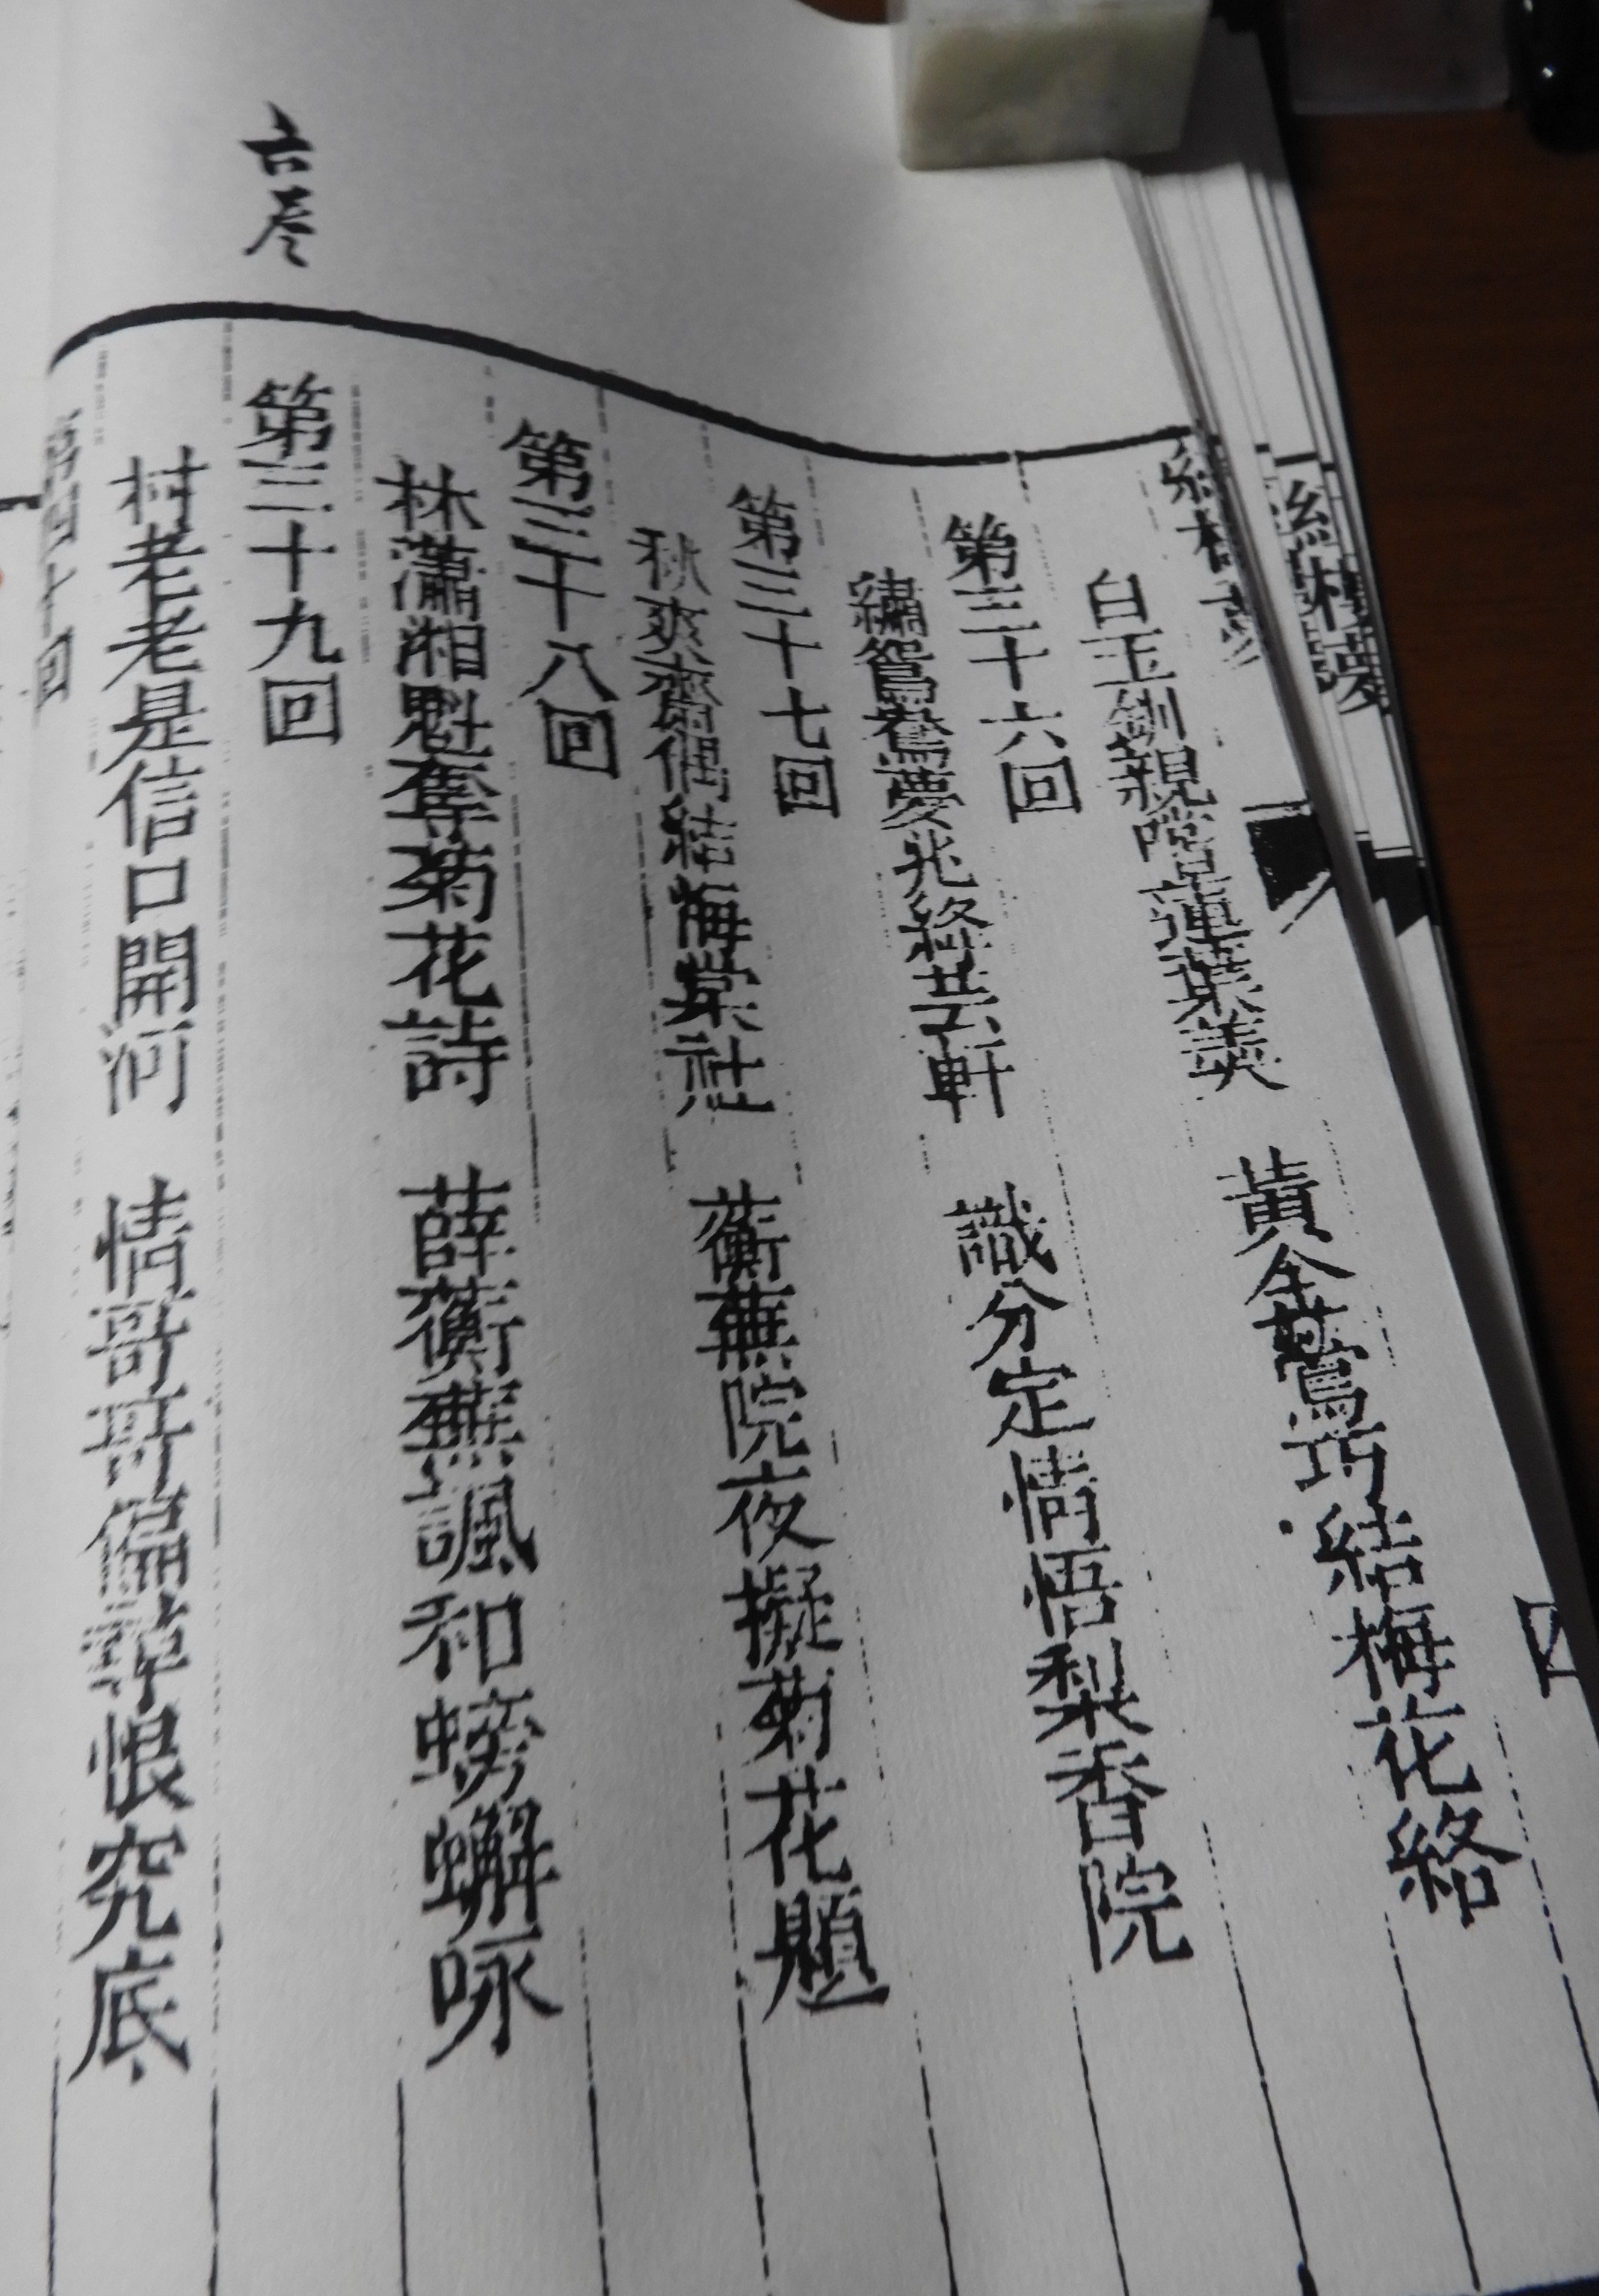 紅樓夢
白玉釧親嘗蓮葉羹　黃金鶯巧結梅花絡
第三十六回
繡鴛鴦夢兆絳芸軒　識分定情悟梨香院
第三十七回
秋爽齋偶結海棠社　蘅蕪院夜擬菊花題
第三十八回
林瀟湘魁奪菊花詩　薛蘅蕪諷和螃蟹咏
第三十九回
村老老是信口開河　情哥哥偏尋根究底
第四十回